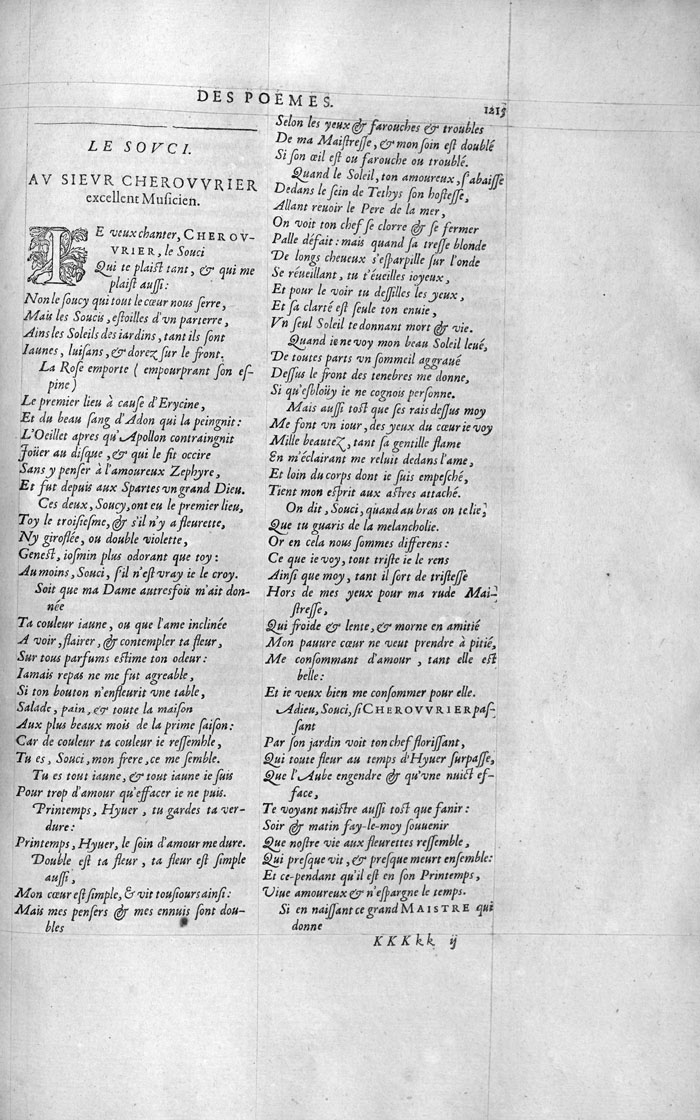 DES POËMES. 1215
LE SOVCI.
AV SIEVR CHEROVVRIER
excellent Musicien.
IE veux chanter, CHEROV-
VRIER, le Souci
Qui te plaist tant, & qui me
plaist aussi:
Non le soucy qui tout le cœur nous serre,
Mais les Soucis, estoilles d'vn parterre,
Ains les Soleils des iardins, tant ils sont
Iaunes, luisans, & dorez sur le front.
La Rose emporte (empourprant son es-
pine)
Le premier lieu à cause d'Erycine,
Et du beau sang d'Adon qui la peingnit:
L'Oeillet apres qu'Apollon contraingnit
Joüer au disque, & qui le fit occire
Sans y penser à l'amoureux Zephyre,
Et fut depuis aux Spartes vn grand Dieu.
Ces deux, Soucy, ont eu le premier lieu,
Toy le troisiesme, & s'il n'y a fleurette,
Ny giroflée, ou double violette,
Genest, iosmin plus odorant que toy:
Au moins, Souci, s'il n'est vray ie le croy.
Soit que ma Dame autresfois m'ait don-
née
Ta couleur iaune, ou que l'ame inclinée
A voir, flairer, & contempler ta fleur,
Sur tous parfums estime ton odeur:
Iamais repas ne me fut agreable,
Si ton bouton n'enfleurit vne table,
Salade, pain, & toute la maison
Aux plus beaux mois de la prime saison:
Car de couleur ta couleur ie ressemble,
Tu es, Souci, mon frere, ce me semble.
Tu es tout iaune, & tout iaune ie suis
Pour trop d'amour qu'effacer ie ne puis.
Printemps, Hyuer, tu gardes ta ver-
dure:
Printemps, Hyuer, le soin d'amour me dure.
Double est ta fleur, ta fleur est simple
aussi,
Mon cœur est simple, & vit tousiours ainsi:
Mais mes pensers & mes ennuis sont dou-
bles
Selon les yeux & farouches & troubles
De ma Maistresse, & mon soin est doublé
Si son œil est ou farouche ou troublé.
Quand le Soleil, ton amoureux, s'abaisse
Dedans le sein de Tethys son hostesse,
Allant reuoir le Pere de la mer,
On voit ton chef se clorre & se fermer
Palle défait: mais quand sa tresse blonde
De longs cheueux s'esparpille sur l'onde
Se réueillant, tu t'éueilles ioyeux,
Et pour le voir tu dessilles les yeux,
Et sa clarté est seule ton enuie,
Vn seul Soleil te donnant mort & vie.
Quand ie ne voy mon beau Soleil leué,
De toutes parts vn sommeil aggraué
Dessus le front des tenebres me donne,
Si qu'esbloüy ie ne cognois personne.
Mais aussi tost que ses rais dessus moy
Me font vn iour, des yeux du cœur ie voy
Mille beautez, tant sa gentille flame
En m'éclairant me reluit dedans l'ame,
Et loin du corps dont ie suis empesché,
Tient mon esprit aux astres attaché.
On dit, Souci, quand au bras on te lie,
Que tu guaris de la melancholie.
Or en cela nous sommes differens:
Ce que ie voy, tout triste ie le rens
Ainsi que moy, tant il sort de tristesse
Hors de mes yeux pour ma rude Mai-
stresse,
Qui froide & lente, & morne en amitié
Mon pauure cœur ne veut prendre à pitié,
Me consommant d'amour, tant elle est
belle:
Et ie veux bien me consommer pour elle.
Adieu, Souci, si CHEROVVRIER pas-
sant
Par son jardin voit ton chef florissant,
Qui toute fleur au temps d'Hyuer surpasse,
Que l'Aube engendre & qu'vne nuict ef-
face,
Te voyant naistre aussi tost que fanir:
Soir & matin fay-le-moy souuenir
Que nostre vie aux fleurettes ressemble,
Qui presque vit, & presque meurt ensemble:
Et ce-pendant qu'il est en son Printemps,
Viue amoureux & n'espargne le temps.
Si en naissant ce grand MAISTRE qui
donne
KKKkk ij